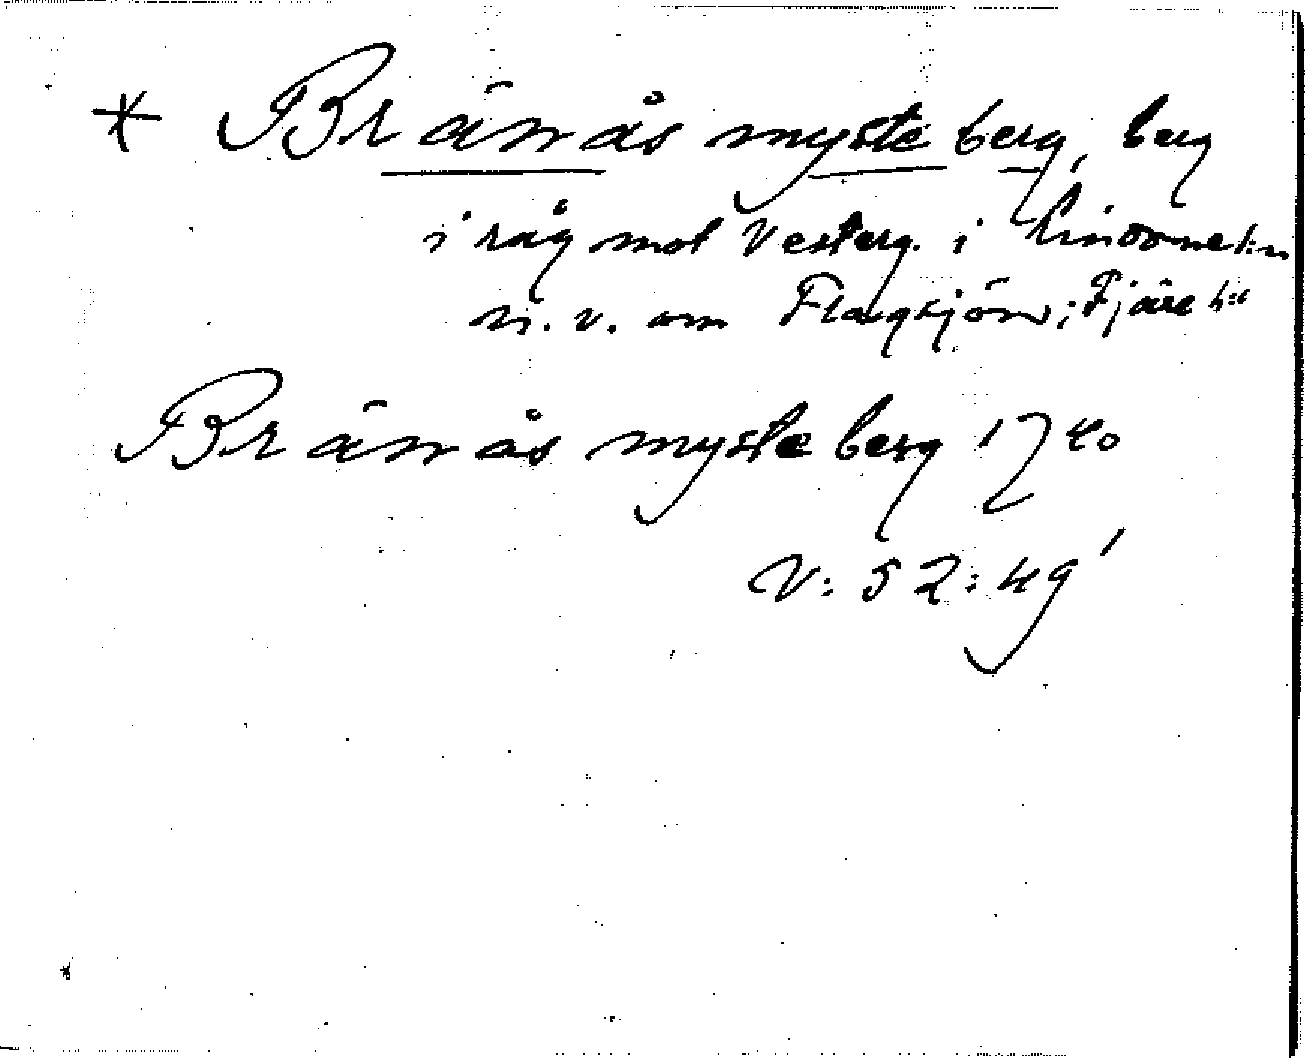 * Bränås myste berg, berg
i råg mot Vesterg. i
n. v. om Flaugsjön i Fjäre hd
Bränås myste berg 1740
V: 52: 49'